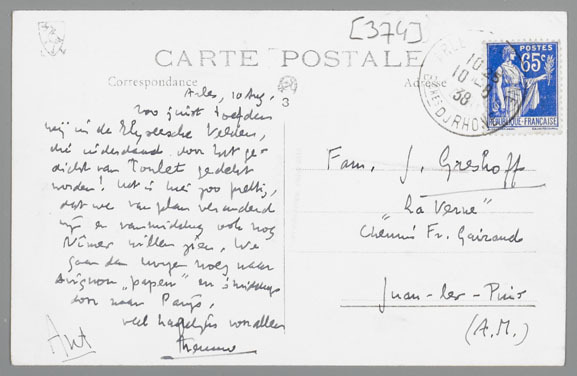 [374]
CARTE POSTALE
Correspondance
Adresse
3
POSTES
65c
REPUBLIQUE-FRANÇAISE
ARLES
10 - 8
38
DU RHONE
Arles, 10 Aug.
zoo juist toefden
wij in de Elyseesche Velden,
die inderdaad door het ge-
dicht van Toulet gedekt
worden! Het is hier zoo prettig,
dat we van plan veranderd
zijn en vanmiddag ook nog
Nîmes willen zien. We
gaan dan morgen nog naar
Avignon "papen" en 's middags
door naar Parijs.
veel hartelijks von allen
Ant
Fam. J. Greshoff
"La Verne"
Chemin Fr. Gairaud
Juan-les-Pins
(A.M.)